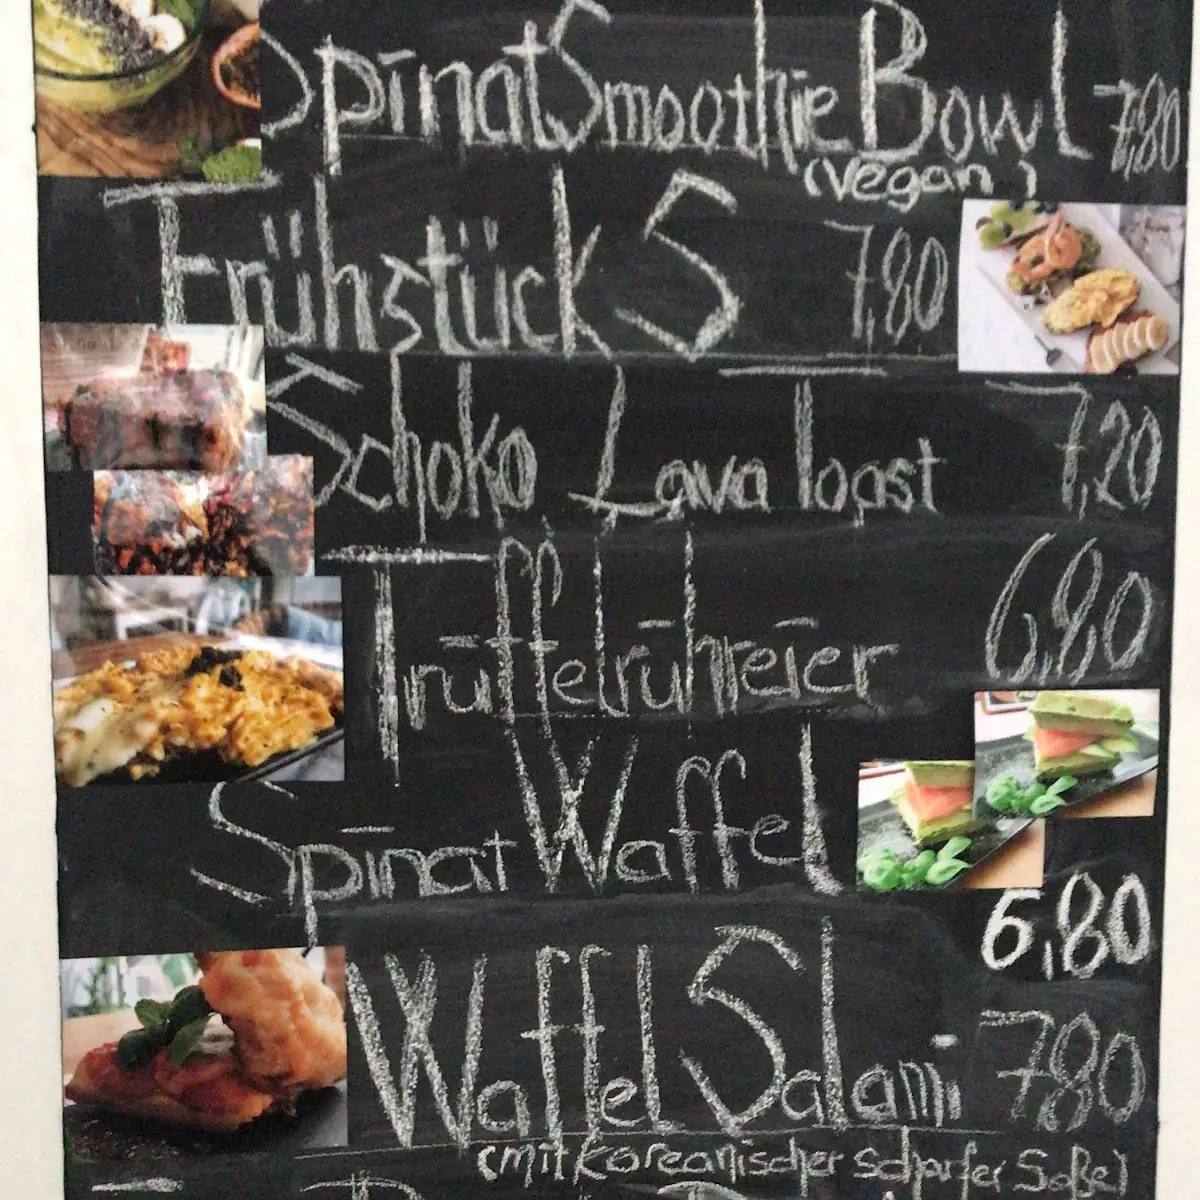 Spinat Smoothie Bowl 7,80
(vegan)
Frühstück S 7,80
Schoko Lava Toast 7,20
Trüffelrühreier 6,80
Spinat Waffel
6,80
Waffel Salami 7,80
(mit koreanischer scharfer Soße)